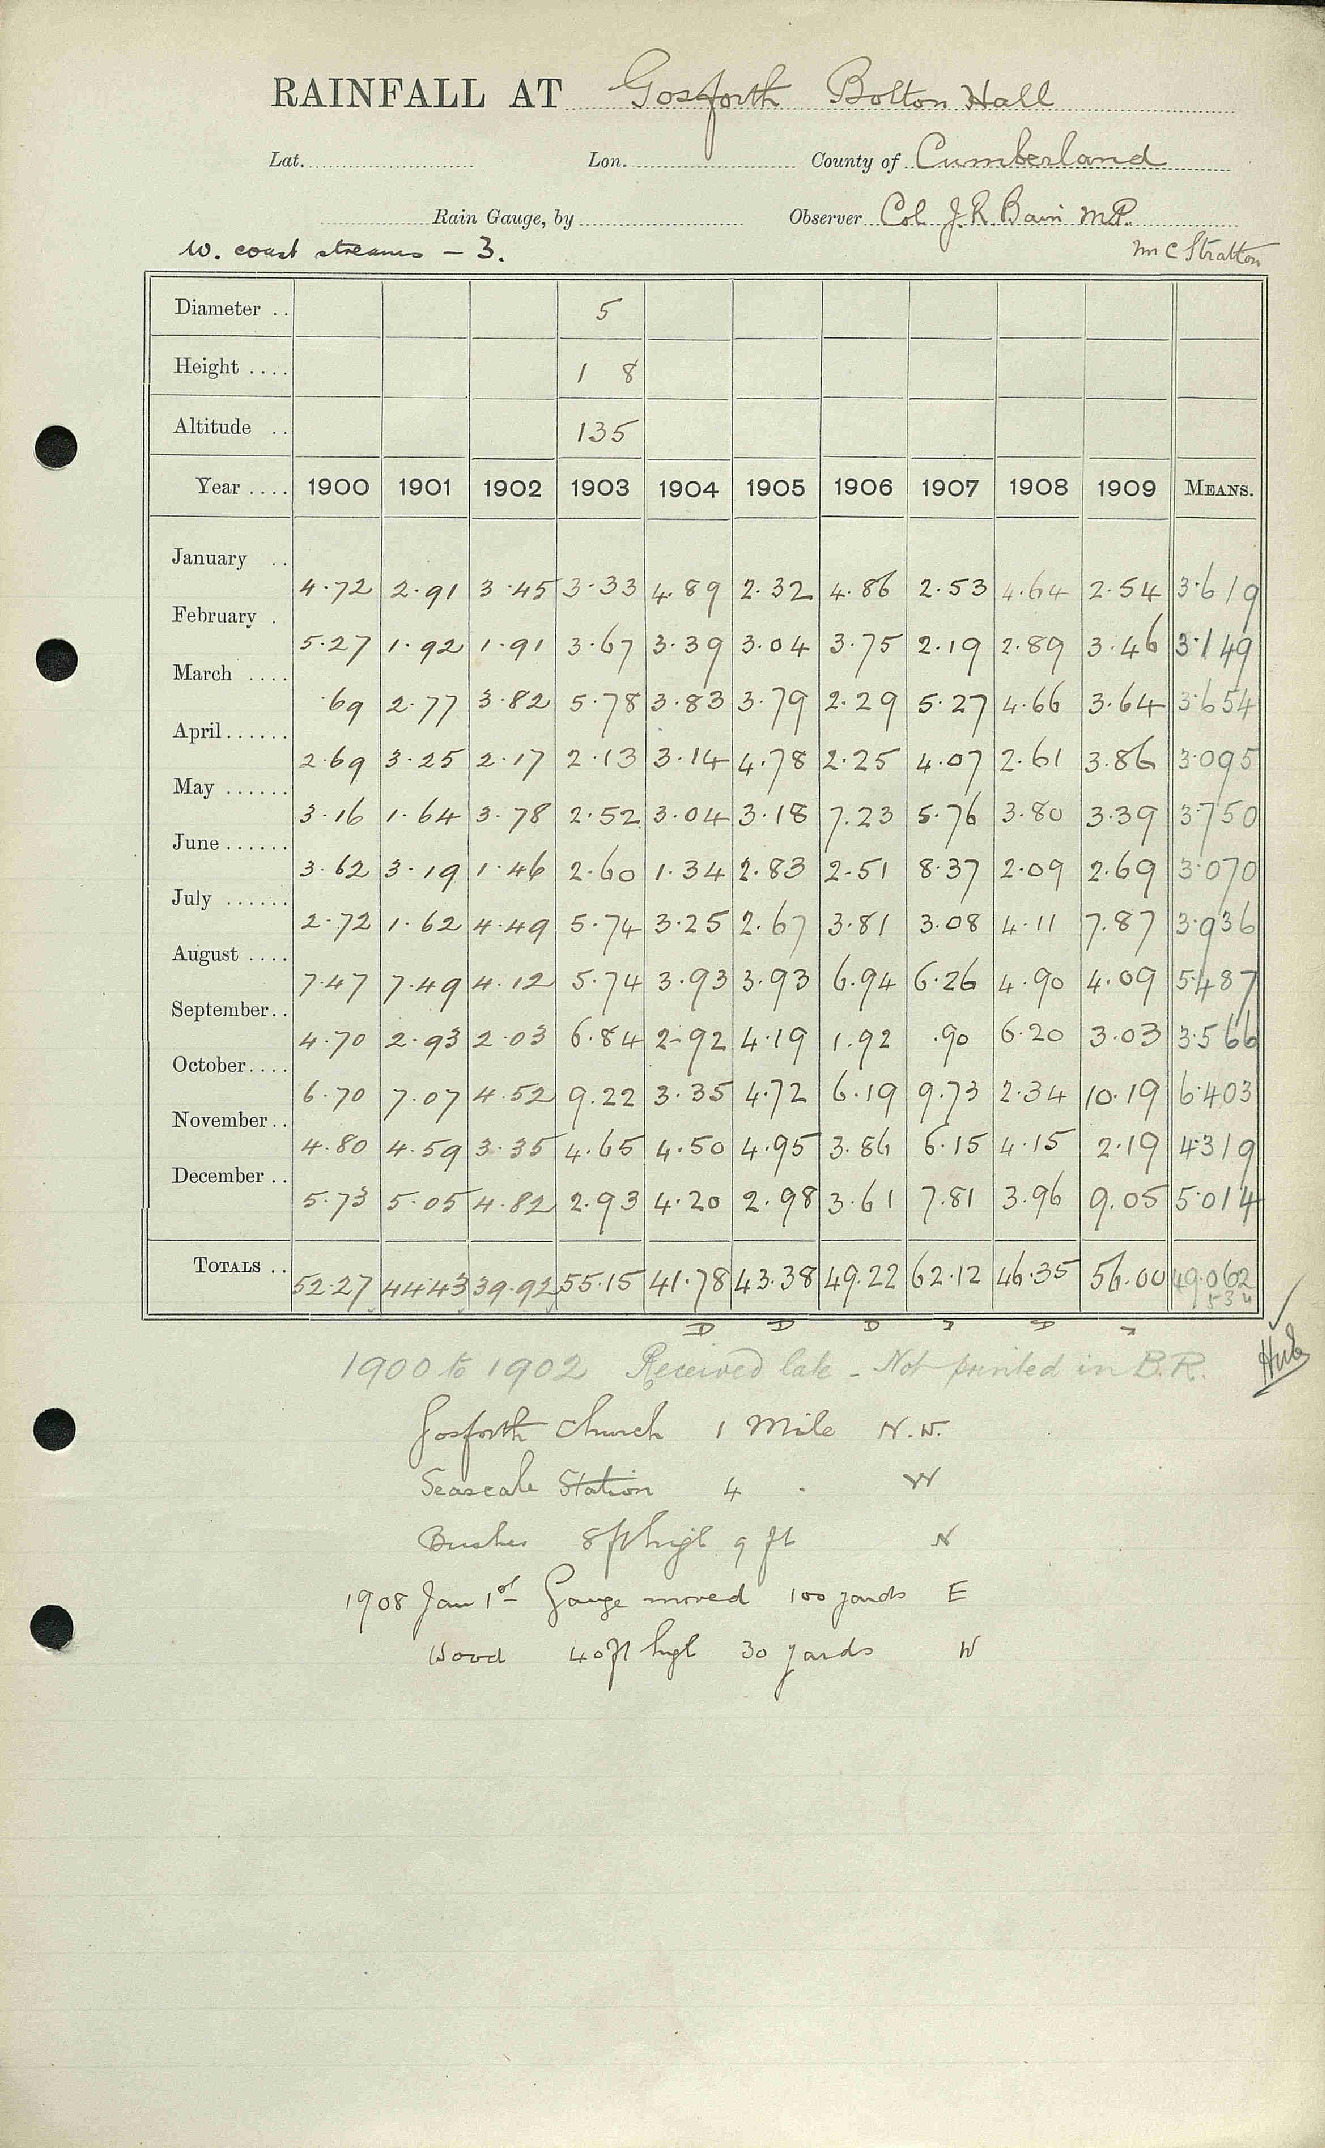 RAINFALL AT Gosforth Bolton Hall
Lat. Lon. County of Cumberland
Rain Gauge, by Observer Col J. R Bain M.P.
W. coast streams - 3. Mr C Stratton
Diameter .. 5
Height .... 1 8
Altitude .. 135
Year .... 1900 1901 1902 1903 1904 1905 1906 1907 1908 1909 MEANS.
January .. 4.72 2.91 3.45 3.33 4.89 2.32 4.86 2.53 4.64 2.54 3.619
February . 5.27 1.92 1.91 3.67 3.39 3.04 3.75 2.19 2.89 3.46 3.149
March .... .69 2.77 3.82 5.78 3.83 3.79 2.29 5.27 4.66 3.64 3.654
April ...... 2.69 3.25 2.17 2.13 3.14 4.78 2.25 4.07 2.61 3.86 3.095
May ...... 3.16 1.64 3.78 2.52 3.04 3.18 7.23 5.76 3.80 3.39 3.750
June ...... 3.62 3.19 1.46 2.60 1.34 2.83 2.51 8.37 2.09 2.69 3.070
July ...... 2.72 1.62 4.49 5.74 3.25 2.67 3.81 3.08 4.11 7.87 3.936
August .... 7.47 7.49 4.12 5.74 3.93 3.93 6.94 6.26 4.90 4.09 5.487
September .. 4.70 2.93 2.03 6.84 2.92 4.19 1.92 .90 6.20 3.03 3.566
October .... 6.70 7.07 4.52 9.22 3.35 4.72 6.19 9.73 2.34 10.19 6.403
November .. 4.80 4.59 3.35 4.65 4.50 4.95 3.86 6.15 4.15 2.19 4.319
December .. 5.73 5.05 4.82 2.93 4.20 2.98 3.61 7.81 3.96 9.05 5.014
TOTALS .. 52.27 44.43 39.92 55.15 41.78 43.38 49.22 62.12 46.35 56.00 49.062
D D D D
1900 to 1902 Received late - Not printed in B.R.
Gosforth Church 1 Mile N.W.
Seascale Station 4 . W
Bushes 8ft high 9 ft N
1908 Jan 1st Gauge moved 100 yards E
Wood 40ft high 30 yards W